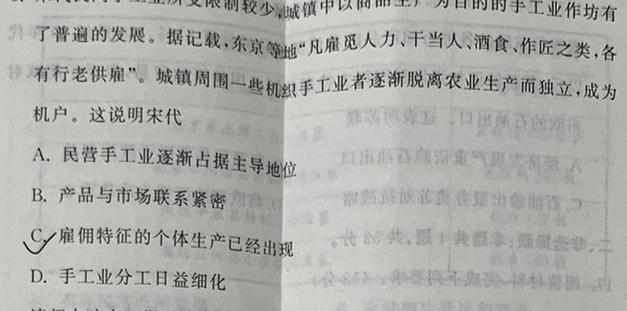 民间手工业所受限制较少,城镇中以商品生产为目的的手工业作坊有
了普遍的发展。据记载,东京等地“凡雇觅人力、干当人、酒食、作匠之类,各
有行老供雇”。城镇周围一些机织手工业者逐渐脱离农业生产而独立,成为
机户。这说明宋代
A. 民营手工业逐渐占据主导地位
B. 产品与市场联系紧密
C. 雇佣特征的个体生产已经出现
D. 手工业分工日益细化